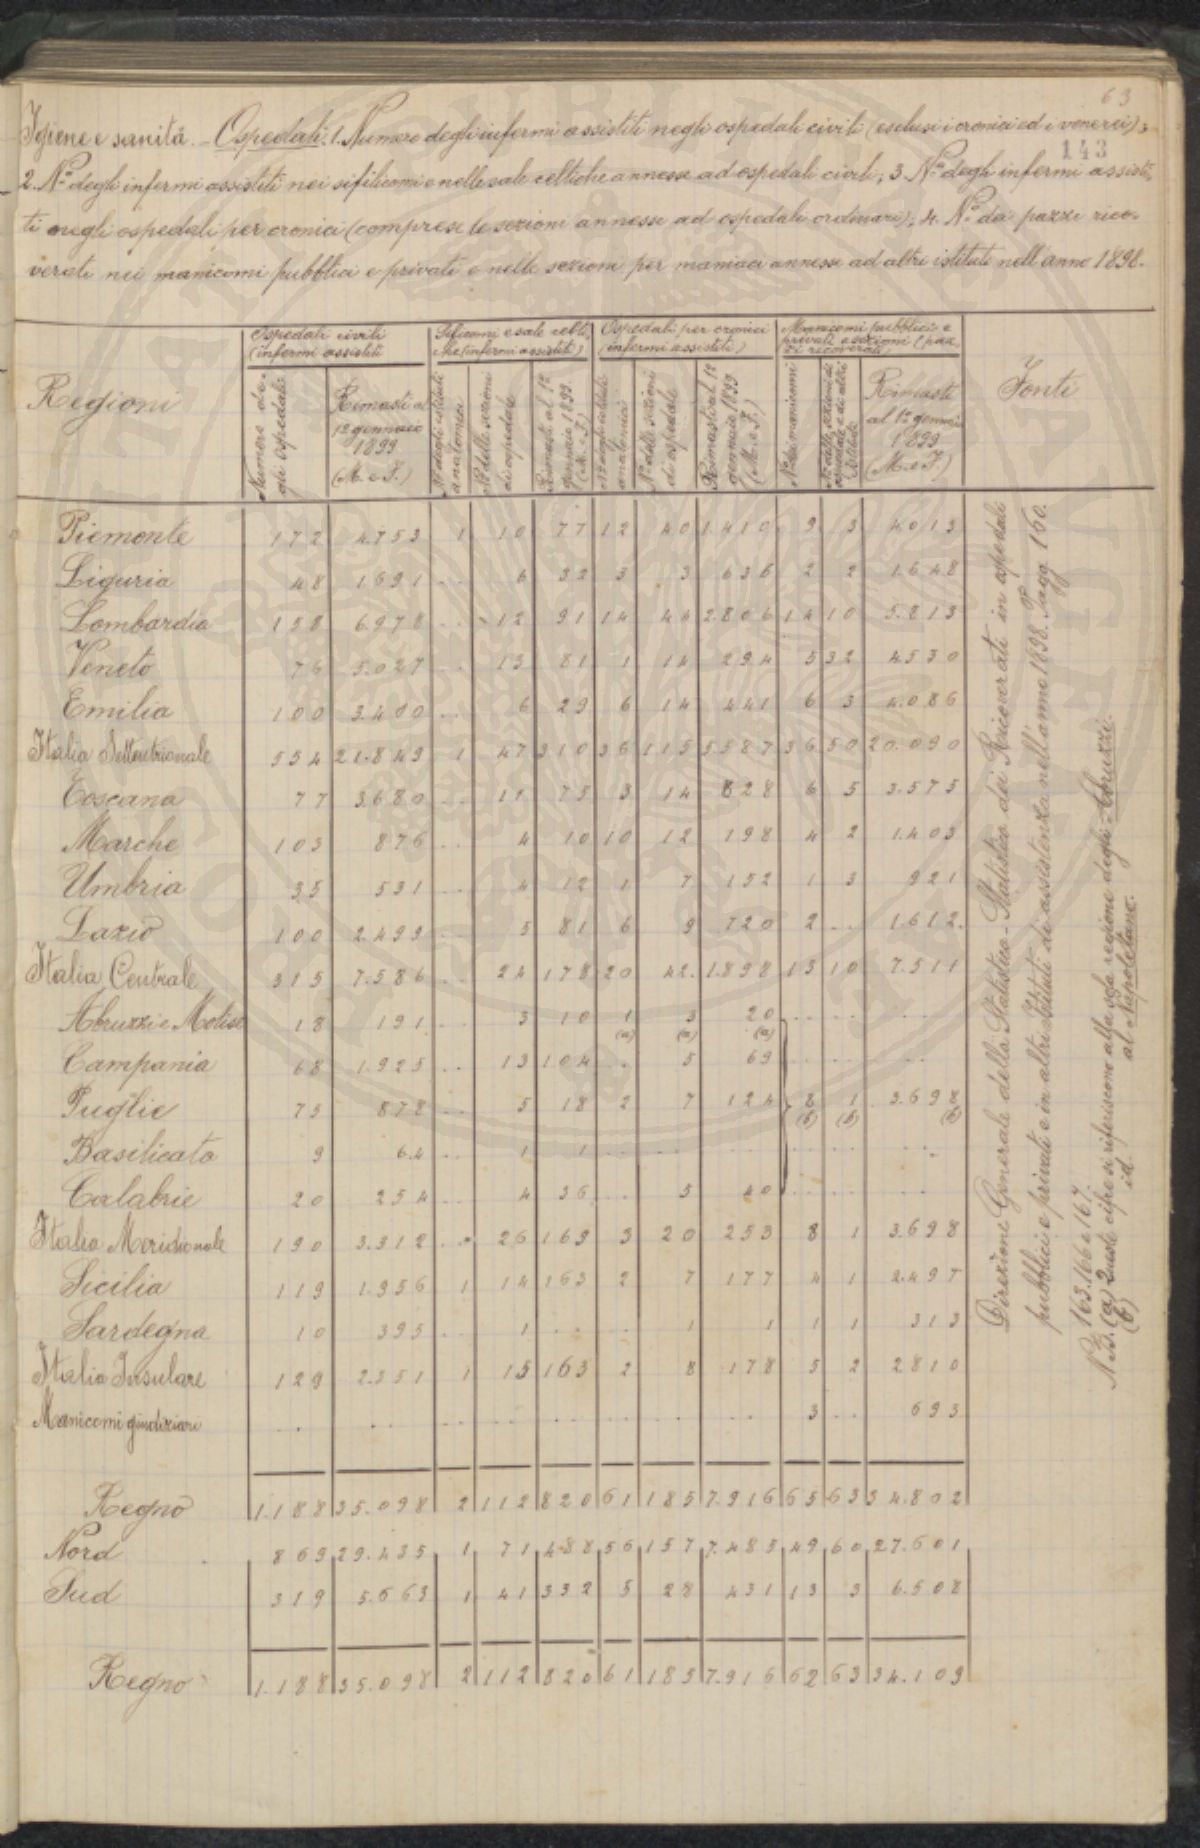 63
143
Igiene e sanità. - Ospedali: 1. Numero degli infermi assistiti negli ospedali civili (esclusi i cronici ed i venerei);
2. No. degli infermi assistiti nei sifilicomi e nelle sale celtiche annesse ad ospedali civili; 3. No. degli infermi assisti-
ti negli ospedali per cronici (comprese le sezioni annesse ad ospedali ordinari); 4. No. dei pazzi rico-
verati nei manicomi pubblici e privati e nelle sezioni per maniaci annesse ad altri istituti nell'anno 1898.
Regioni
Ospedali civili (infermi assistiti)
Numero degli ospedali
Rimasti al 1º gennaio 1899 (M. e F.)
Sificomi e sale celtiche (infermi assistiti)
No. degli istituti
No. delle sezioni di ospedale
Rimasti al 1º gennaio 1899 (M. e F.)
Ospedali per cronici (infermi assistiti)
No. degli istituti
No. delle sezioni di ospedale
Rimasti al 1º gennaio 1899 (M. e F.)
Manicomi pubblici e privati e sezioni (pazzi ricoverati)
No. dei manicomi
No. delle sezioni di ospedale e di altri istituti
Rimasti al 1º gennaio 1899 (M. e F.)
Fonti
Piemonte 172 4.753 1 10 77 12 40 1.410 9 3 4.013
Liguria 48 1.691 .. 6 32 3 3 636 2 2 1.648
Lombardia 158 6.978 .. 12 91 14 44 2.806 14 10 5.813
Veneto 76 5.027 .. 13 81 1 14 294 5 32 4530
Emilia 100 3.400 .. 6 29 6 14 441 6 3 4.086
Italia Settentrionale 554 21.849 1 47 310 36 115 5587 36 50 20.090
Toscana 77 3.680 .. 11 75 3 14 828 6 5 3.575
Marche 103 876 .. 4 10 10 12 198 4 2 1.403
Umbria 35 531 .. 4 12 1 7 152 1 3 921
Lazio 100 2.499 .. 5 81 6 9 720 2 .. 1.612.
Italia Centrale 315 7.586 .. 24 178 20 42. 1.898 13 10 7.511
Abruzzi e Molise 18 191 .. 3 10 1 (a) 3 (a) 20 (a) .. .. ..
Campania 68 1.925 .. 13 104 .. 5 69 .. .. ..
Puglie 75 878 .. 5 18 2 7 124 8 (b) 1 (b) 3.698 (b)
Basilicata 9 64 .. 1 1 .. .. .. .. .. ..
Calabrie 20 254 .. 4 36 .. 5 40 .. .. ..
Italia Meridionale 190 3.312 .. 26 169 3 20 253 8 1 3.698
Sicilia 119 1.956 1 14 163 2 7 177 4 1 2.497
Sardegna 10 395 .. 1 .. .. 1 1 1 1 313
Italia Insulare 129 2.351 1 15 163 2 8 178 5 2 2810
Manicomi giudiziari .. .. .. .. .. .. .. .. 3 .. 693
Regno 1.188 35.098 2 112 820 61 185 7.916 65 63 34.802
Nord 869 29.435 1 71 488 56 157 7.485 49 60 27.601
Sud 319 5.663 1 41 332 5 28 431 13 3 6.508
Regno 1.188 35.098 2 112 820 61 185 7.916 62 63 34.109
Direzione Generale della Statistica - Statistica dei Ricoverati in ospedali
pubblici e privati e in altri istituti di assistenza nell'anno 1898. Pagg. 160.
163. 166 e 167.
N.B. (a) Queste cifre si riferiscono alla sola regione degli Abruzzi.
(b) id. al Napoletano.